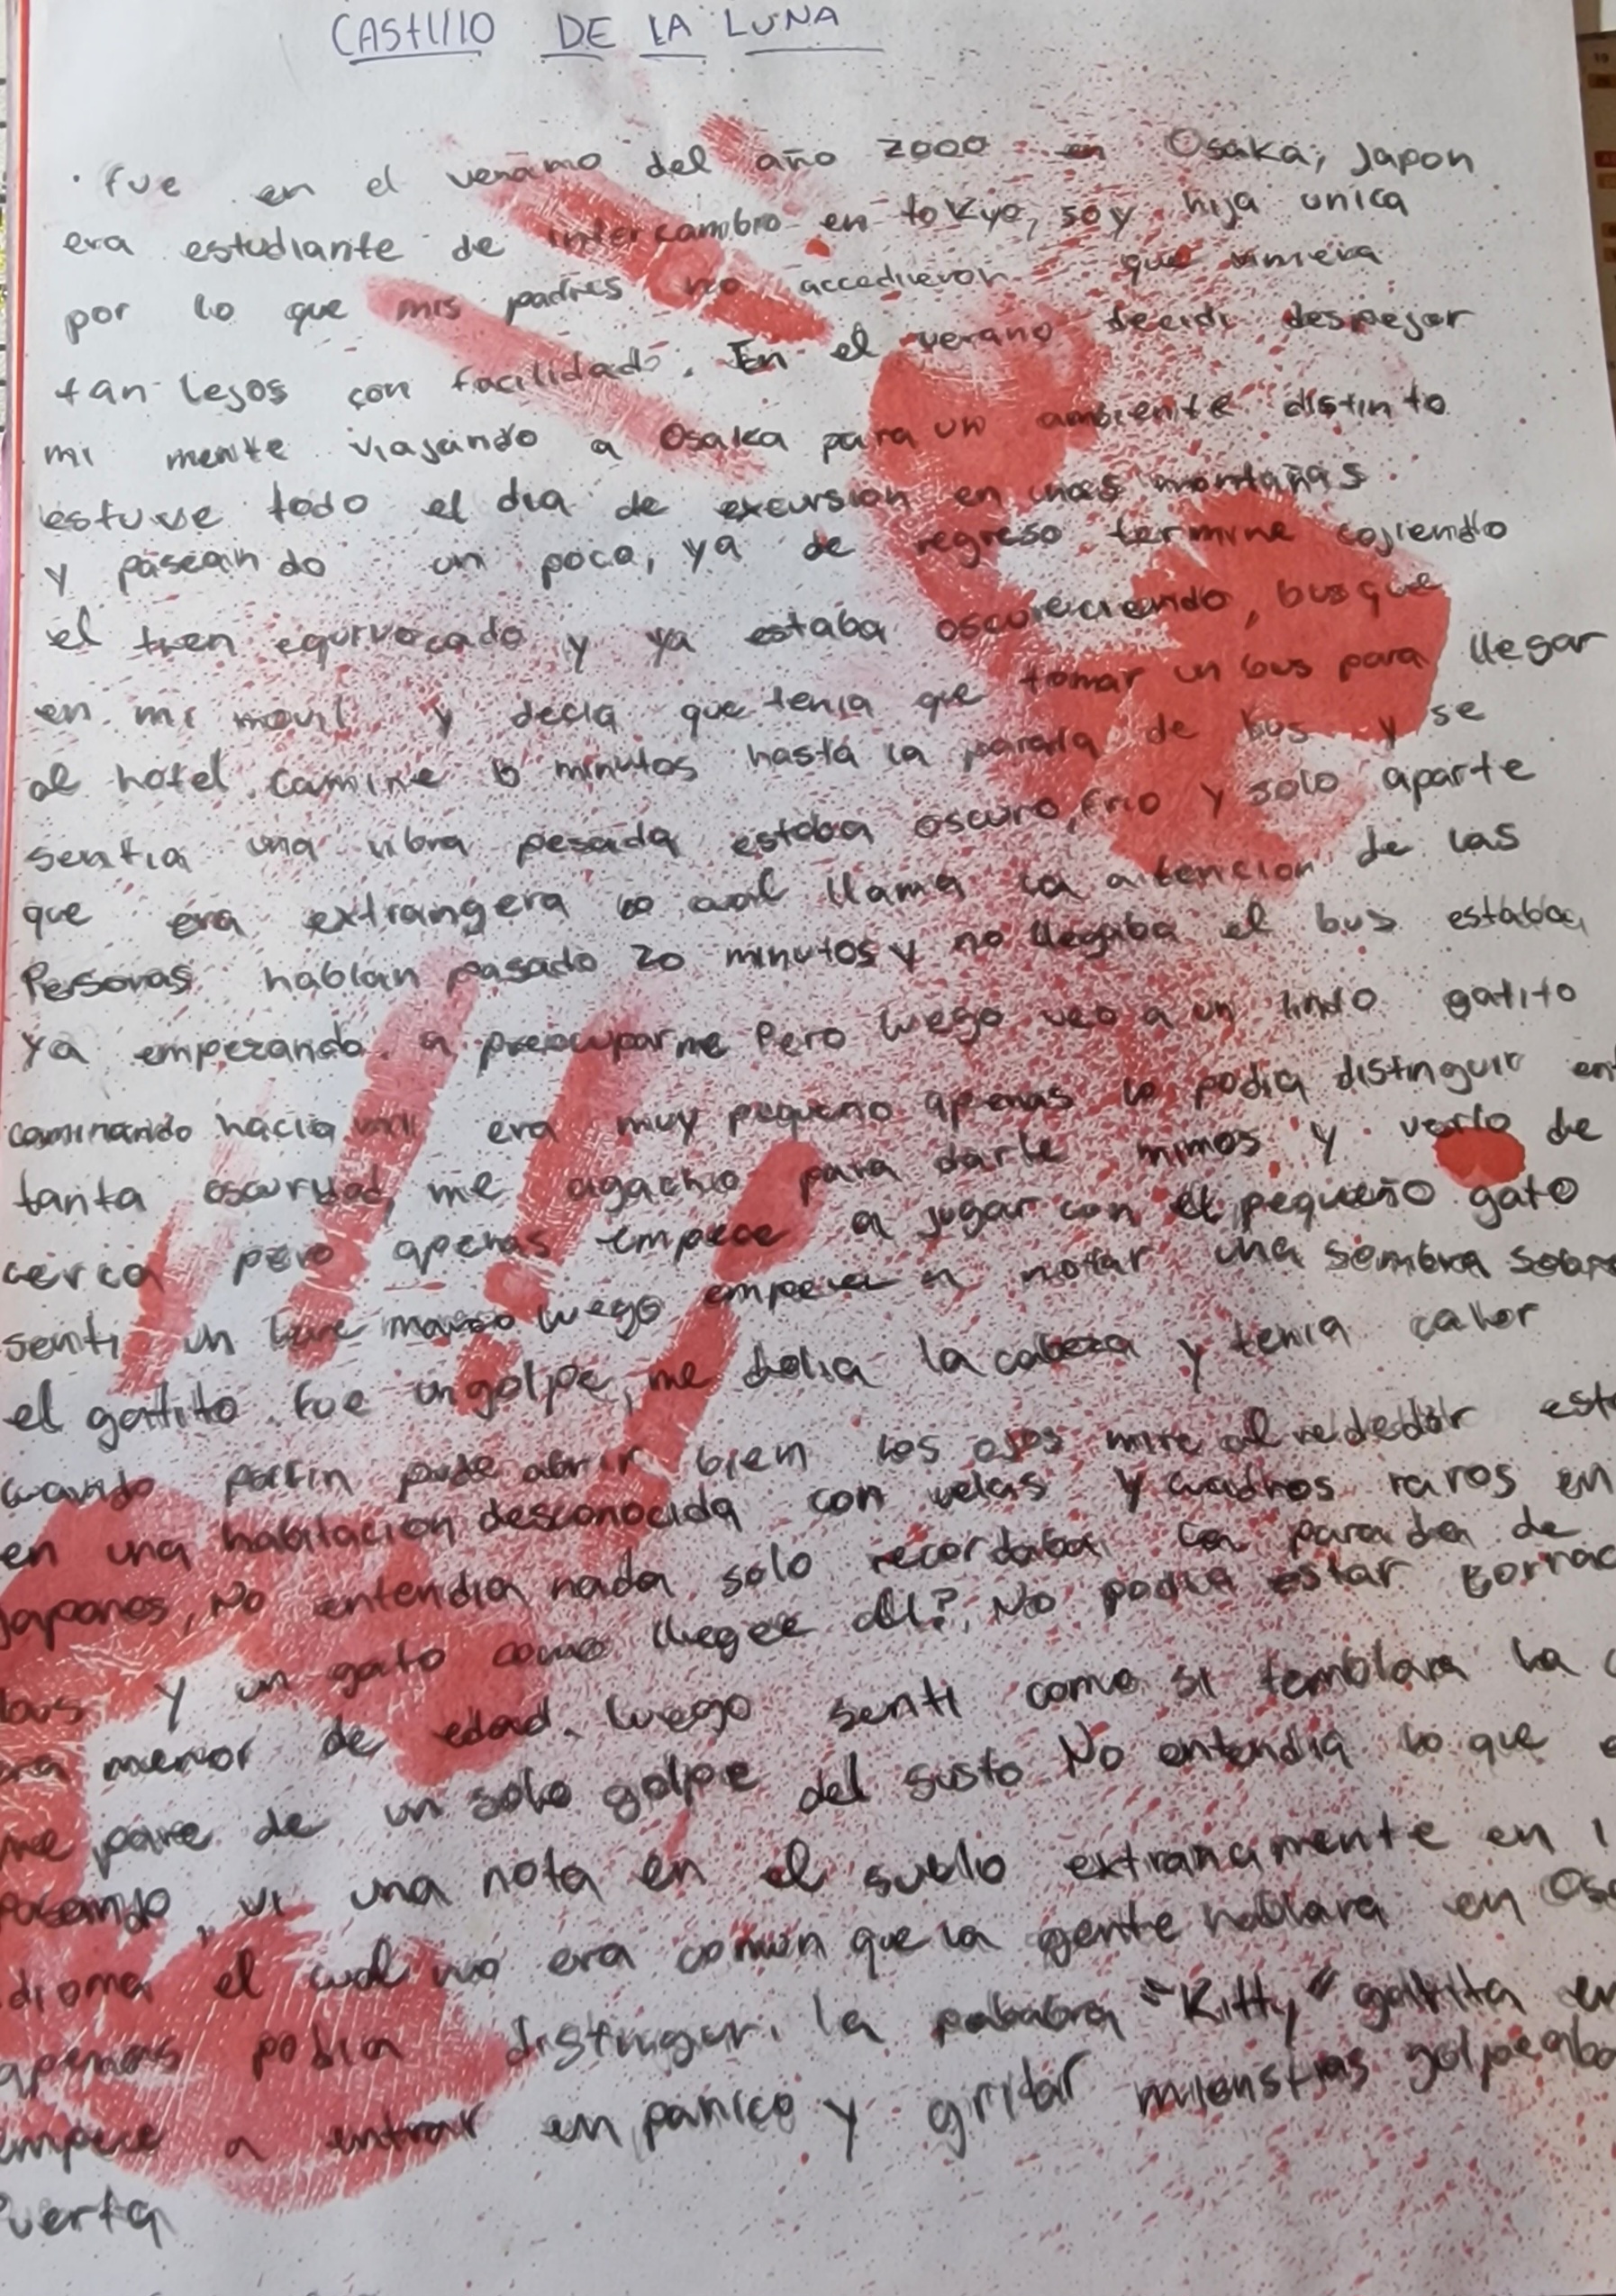 CASTILLO DE LA LUNA
· fue en el verano del año 2000 en Osaka, Japon
era estudiante de intercambio en tokyo, soy hija unica
por lo que mis padres no accedieron que viniera
tan lejos con facilidad. En el verano decidi despejar
mi mente viajando a Osaka para un ambiente distinto
estuve todo el dia de excursion en unas montañas
y paseando un poco, ya de regreso termine cojiendo
el tren equivocado y ya estaba oscureciendo, busque
en mi movil y decia que tenia que tomar un bus para llegar
al hotel. camine minutos hasta la parada de bus y se
sentia una vibra pesada estaba oscuro, frio y solo aparte
que era extrangera lo cual llama la atencion de las
Personas habian pasado 20 minutos y no llegaba el bus estaba
ya empezando a preocuparme Pero luego veo a un lindo gatito
caminando hacia mi era muy pequeno apenas lo podia distinguir en
tanta oscuridad, me agacho para darle mimos y verlo de
cerca pero apenas empece a jugar con el pequeño gato
senti un luego empece a notar una sombra sobre
el gatito. fue un golpe, me dolia la cabeza y tenia calor
cuando porfin pude abrir bien los ojos mire alrededor
en una habitacion desconocida con velas y cuadros raros en
japones, No entendia nada solo recordaba la parada de
bus y un gato como llegee alli?, No podia estar
menor de edad. luego senti como si temblara la
me pare de un solo golpe del susto No entendia lo que
pasando, vi una nota en el suelo extranamente en
idioma el cual no era comun que la gente hablara en
apenas podia distinguir la palabra "Kitty" gatita
empece a entrar en panico y gritar mienstras
Puerta